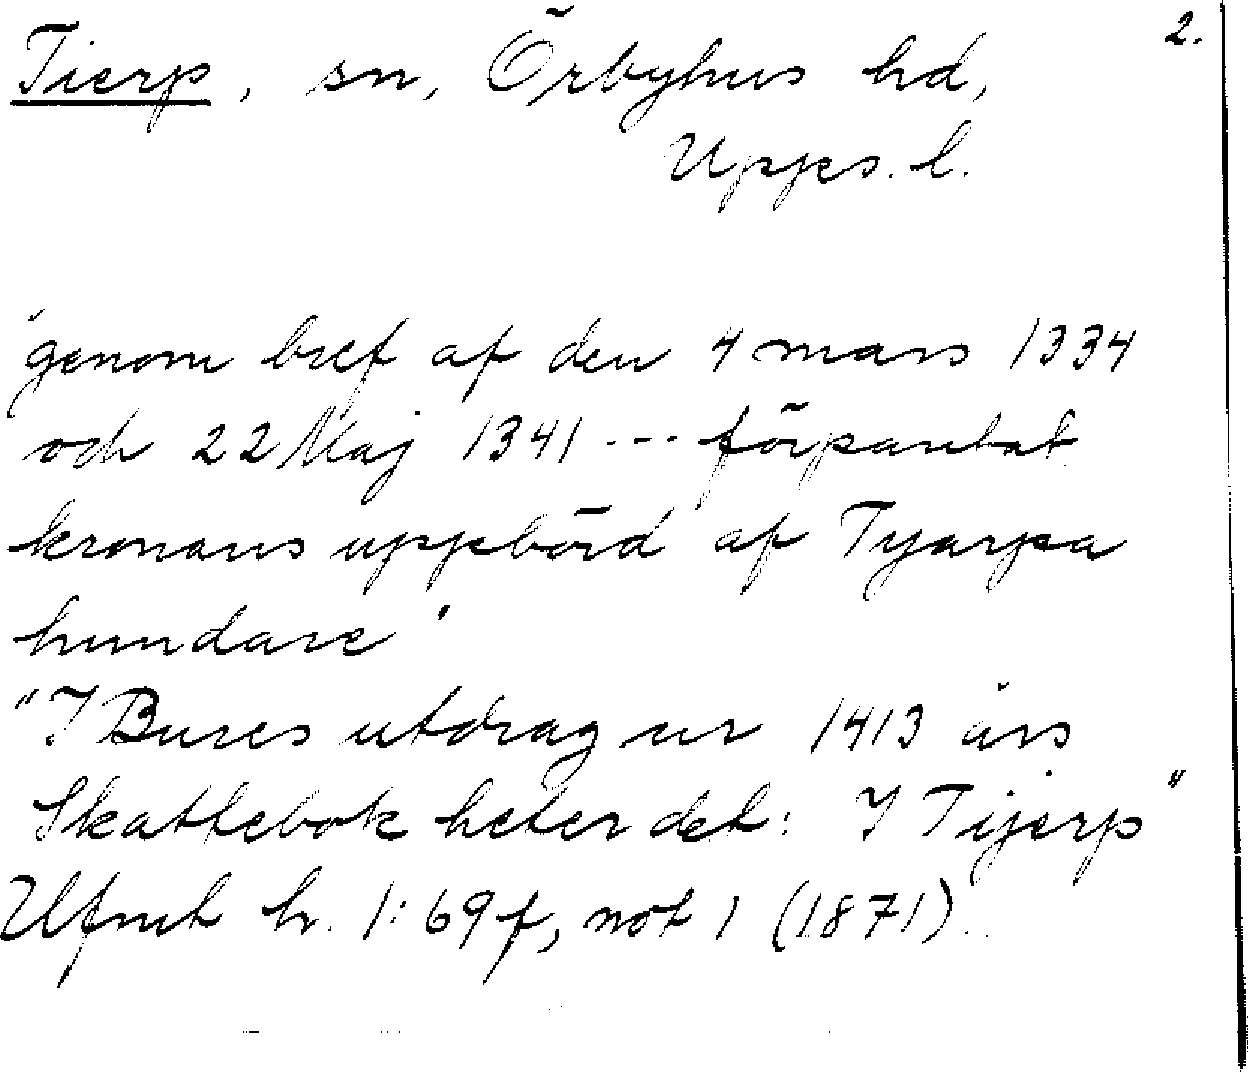 2.
Tierp, sn, Örbyhus hd,
Upps. l.
genom bref af den 4 mars 1334
och 22 Maj 1341 --- förpantat
kronans uppbörd af Tyarpa
hundare"
"I Bures utdrag ur 1413 års
Skattebok heter det: I Tijerp"
Ufmt h. 1:69 f, not 1 (1871).